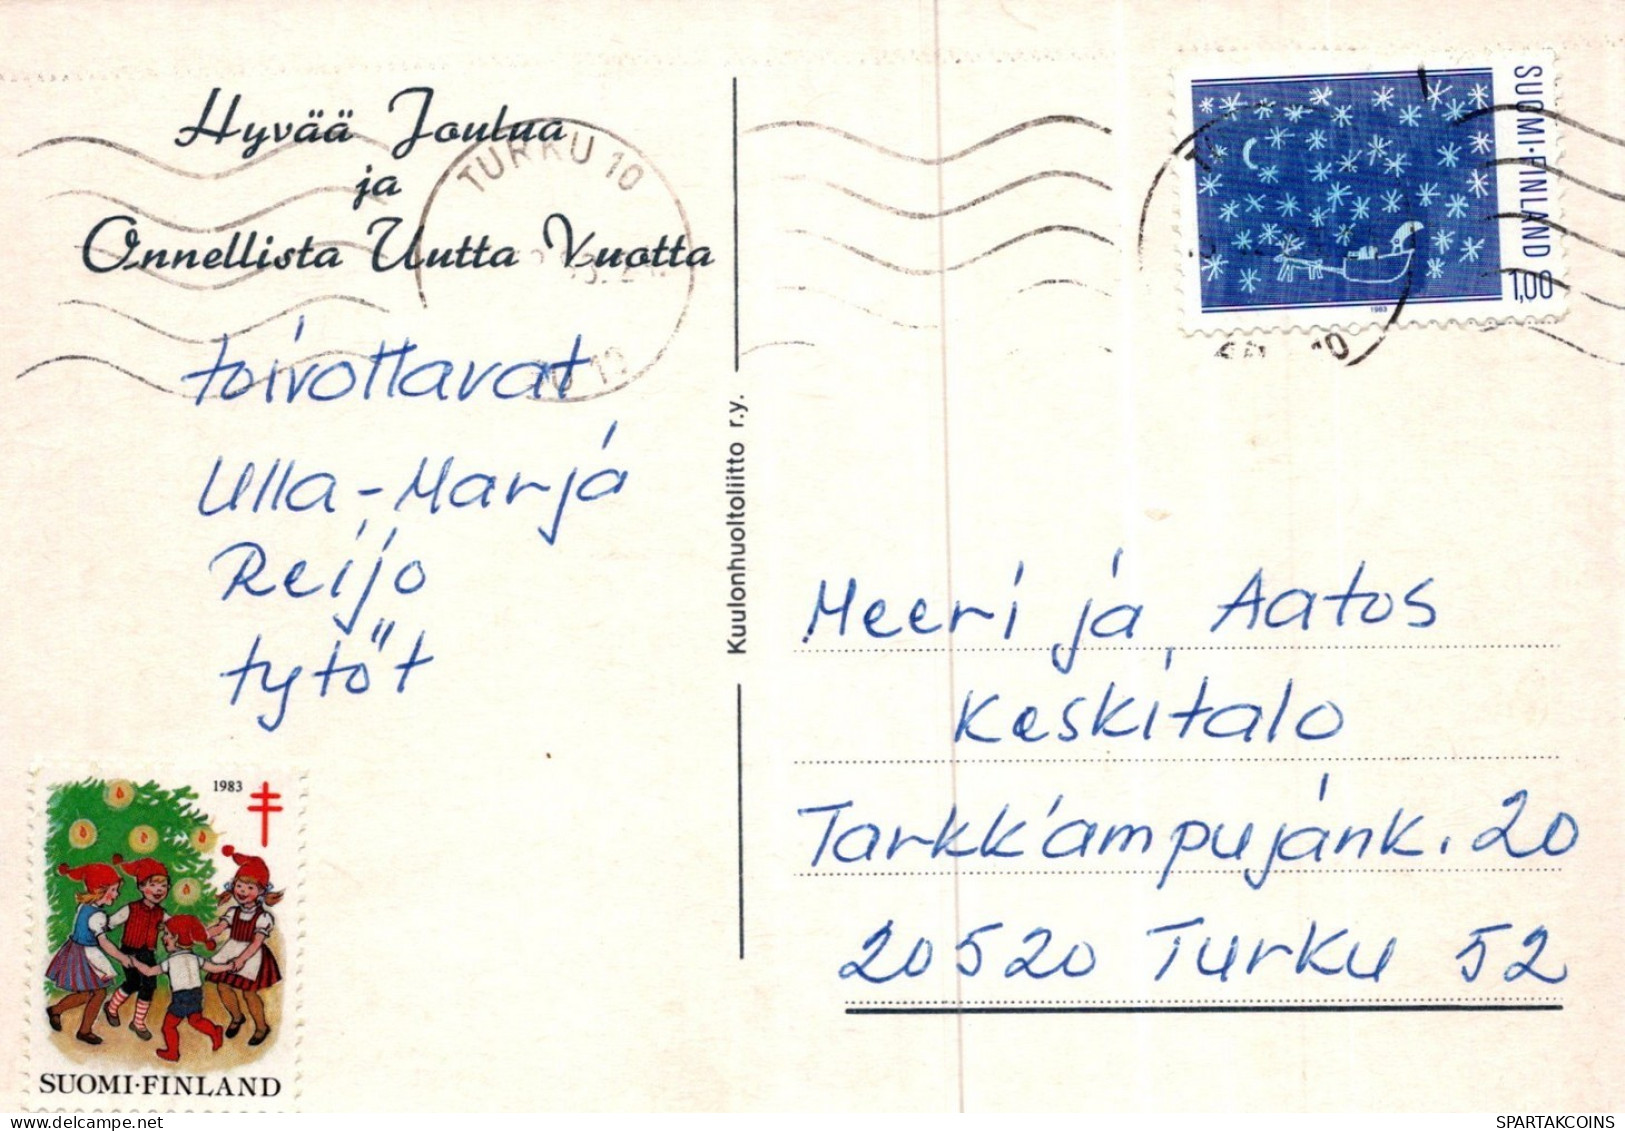 Hyvää Joulua
ja
Onnellista Uutta Vuotta
TURKU 10
toivottavat
Ulla-Marja
Reijo
tytöt
1983
SUOMI·FINLAND
Kuulonhuoltoliitto r.y.
SUOMI·FINLAND
1,00
1983
Meeri ja Aatos
Keskitalo
Tarkk'ampujank. 20
20520 Turku 52
SPARTAKCOINS